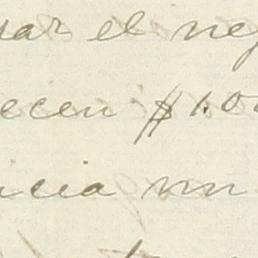 par el neg
ecen $1.0
ncia un